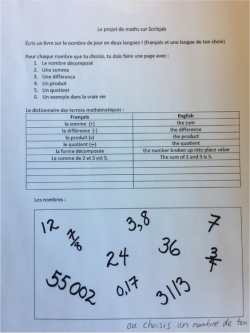 Le projet de maths sur Scribjab
Écris un livre sur le nombre de jour en deux langues ! (français et une langue de ton choix)
Pour chaque nombre que tu choisis, tu dois faire une page avec :
1. Le nombre décomposé
2. Une somme
3. Une différence
4. Un produit
5. Un quotient
6. Un exemple dans la vraie vie
Le dictionnaire des termes mathématiques :
Français English
la somme (+) the sum
la différence (-) the difference
le produit (x) the product
le quotient (÷) the quotient
la forme décomposée the number broken up into place value
La somme de 2 et 3 est 5. The sum of 2 and 3 is 5.
Les nombres :
12 7/8 3,8 7
24 36 3/4
55002 0,17 3113
ou choisis un nombre de ton